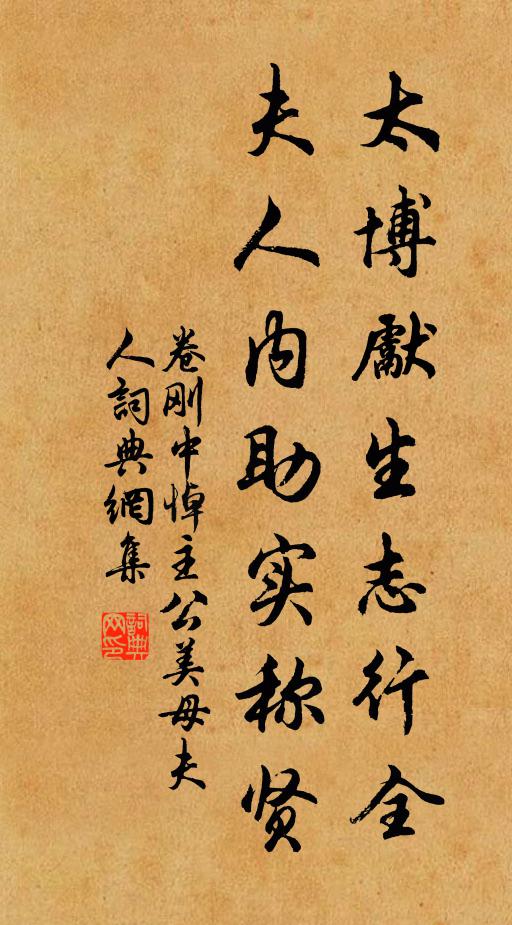 太博獻生志行全
夫人内助实称贤
卷刚中悼主公美母夫
人詞典網集
詞典
网印